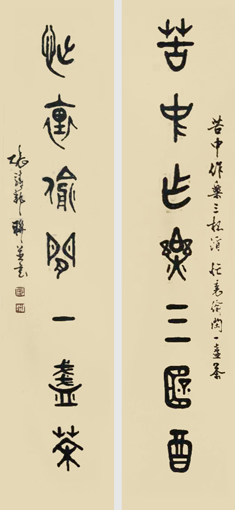 苦中作樂三杯酒 忙裏偷閒一盞茶
苦中作樂三杯酒
忙裏偷閒一盞茶